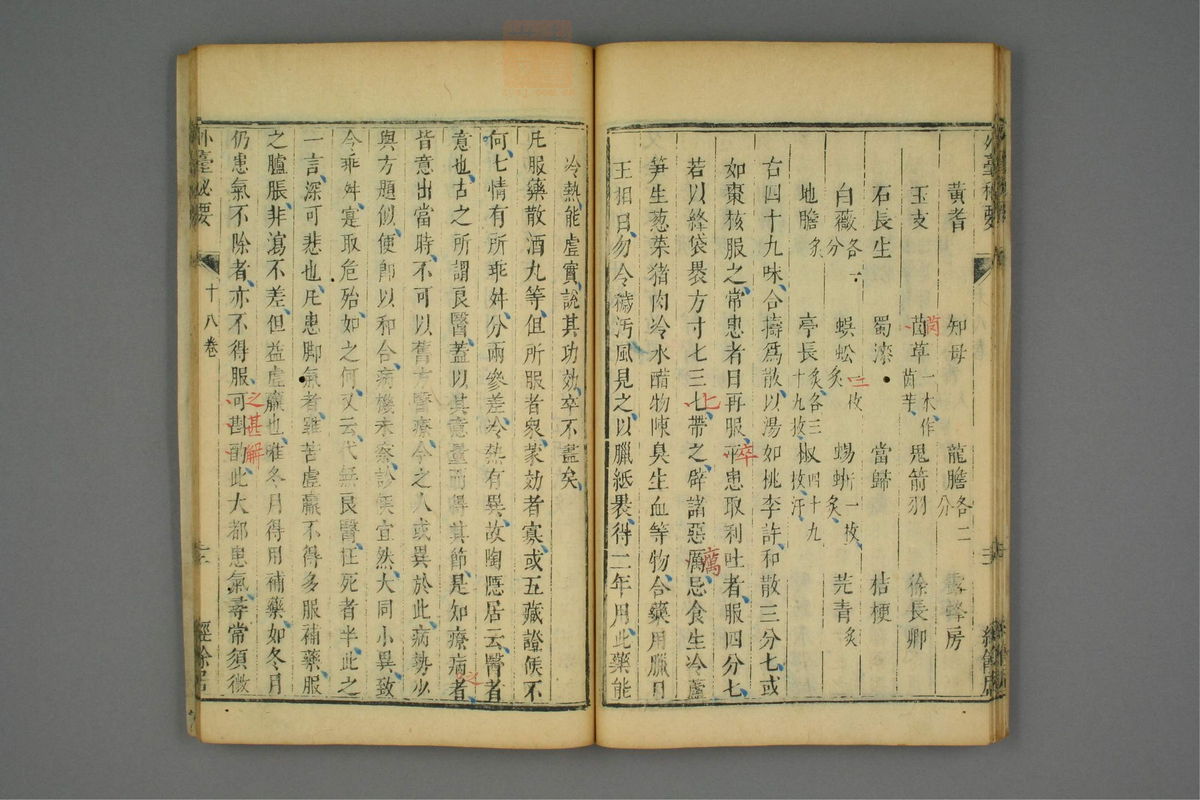 黃耆 知母 龍膽各二分 露蜂房
玉支 茵草一本作茵芋 鬼箭羽 徐長卿
石長生 蜀漆 當歸 桔梗
白薇各一分 蜈蚣炙二枚 蜴蜥一枚炙 芫青炙
地膽炙 亭長炙各三十九枚 椒四十九枚汗
右四十九味合擣爲散以湯如桃李許和散三分七或
如棗核服之常患者日再服平患取利吐者服四分七
若以絳袋褁方寸七三七帶之辟諸惡厲忌食生冷蘆
笋生葱菜猪肉冷水醋物陳臭生血等物合藥用臘日
王相日勿令穢汚風見之以臘紙褁得二年用此藥能
茵
二
七
卒
厲
冷熱能虛實說其功効卒不盡矣
凡服藥散酒丸等但所服者衆蒙効者寡或五藏證候不
何七情有所乖舛分兩參差冷熱有異故陶隱居云醫者
意也古之所謂良醫蓋以其意量而得其節是知療病者
皆意出當時不可以舊方醫療今之人或異於此病勢少
與方題似便卽以和合病機未察診候宜然大同小異致
令乖舛寔取危殆如之何又云代無良醫枉死者半此之
一言深可悲也凡患脚氣者雖苦虛羸不得多服補藥服
之臚脹非瀉不差但益虛羸也唯冬月得用補藥如冬月
仍患氣不除者亦不得服可斟酌此大都患氣尋常須微
之甚解
外臺秘要 十八卷 經餘居
外臺秘要